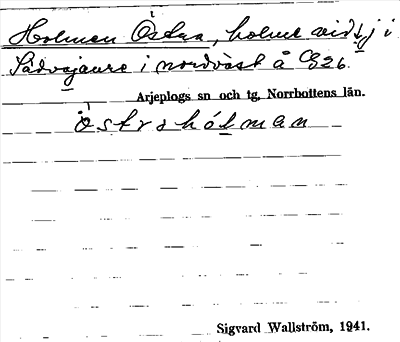 Holmen Östra, holme vid
Sädvajaure i nordväst å G26.
Arjeplogs sn och tg, Norrbottens län.
östrshólman
Sigvard Wallström, 1941.